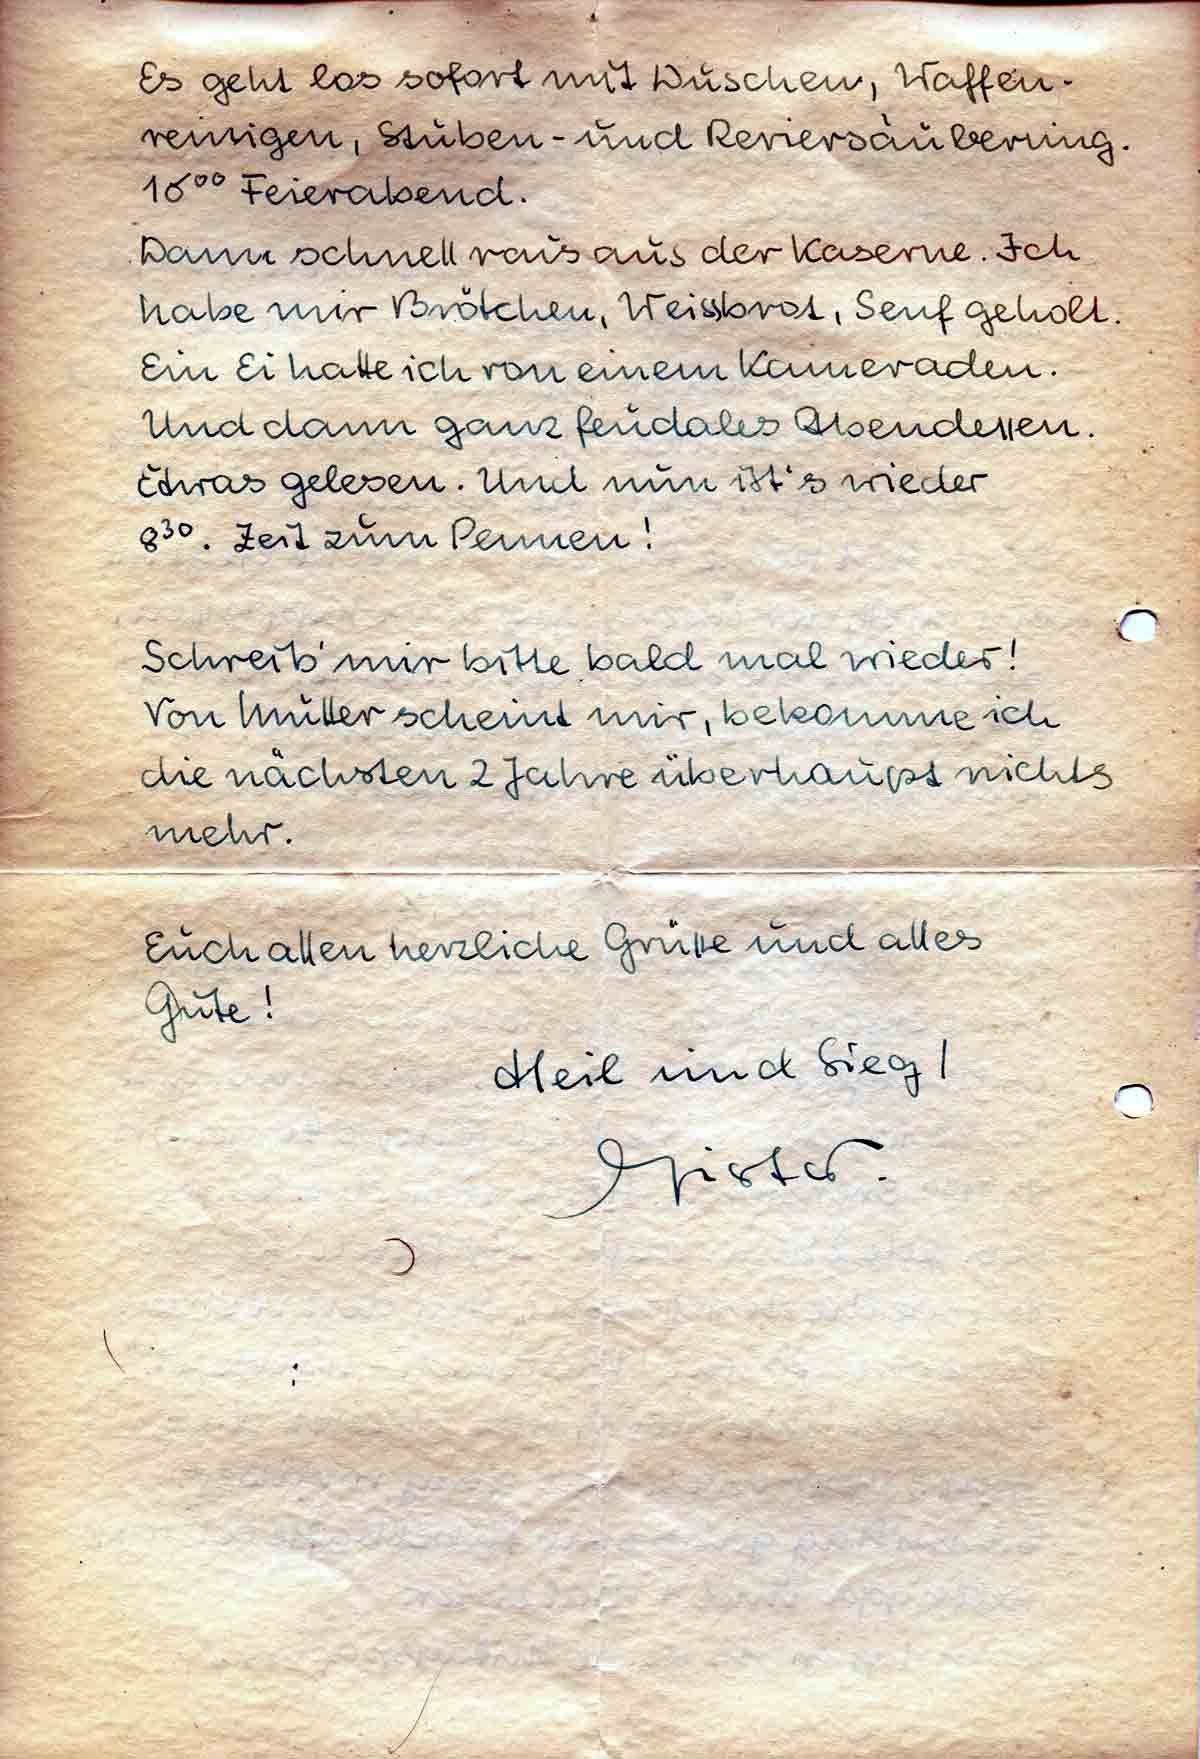 Es geht los sofort mit Duschen, Waffen-
reinigen, Stuben- und Reviersäuberung.
16⁰⁰ Feierabend.
Dann schnell raus aus der Kaserne. Ich
habe mir Brötchen, Weissbrot, Senf geholt.
Ein Ei hatte ich von einem Kameraden.
Und dann ganz feudales Abendessen.
Etwas gelesen. Und nun ist's wieder
8³⁰. Zeit zum Pennen!
Schreib' mir bitte bald mal wieder!
Von Mutter scheint mir, bekomme ich
die nächsten 2 Jahre überhaupt nichts
mehr.
Euch allen herzliche Grüsse und alles
Gute!
Heil und Sieg!